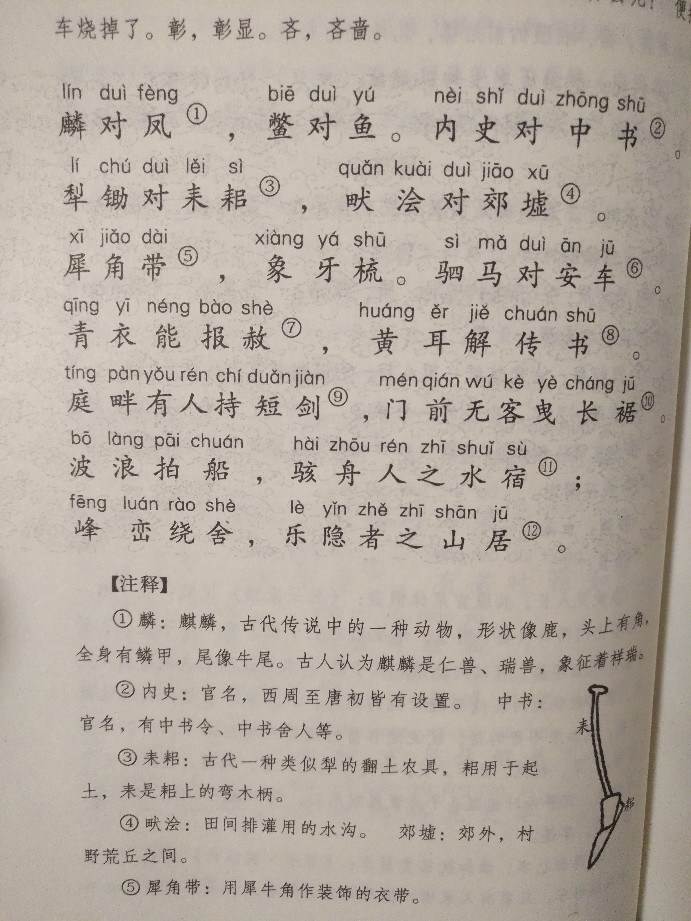 车烧掉了。彰，彰显。吝，吝啬。
lín duì fèng biē duì yú nèi shǐ duì zhōng shū
麟对凤①，鳖对鱼。内史对中书②。
lí chú duì lěi sì quǎn kuài duì jiāo xū
犁锄对耒耜③，畎浍对郊墟④。
xī jiǎo dài xiàng yá shū sì mǎ duì ān jū
犀角带⑤，象牙梳。驷马对安车⑥。
qīng yī néng bào shè huáng ěr jiě chuán shū
青衣能报赦⑦，黄耳解传书⑧。
tíng pàn yǒu rén chí duǎn jiàn mén qián wú kè yè cháng jū
庭畔有人持短剑⑨，门前无客曳长裾⑩。
bō làng pāi chuán hài zhōu rén zhī shuǐ sù
波浪拍船，骇舟人之水宿⑪；
fēng luán rào shè lè yǐn zhě zhī shān jū
峰峦绕舍，乐隐者之山居⑫。
【注释】
①麟：麒麟，古代传说中的一种动物，形状像鹿，头上有角，
全身有鳞甲，尾像牛尾。古人认为麒麟是仁兽、瑞兽，象征着祥瑞。
②内史：官名，西周至唐初皆有设置。 中书：
官名，有中书令、中书舍人等。
③耒耜：古代一种类似犁的翻土农具，耜用于起
土，耒是耜上的弯木柄。
④畎浍：田间排灌用的水沟。 郊墟：郊外，村
野荒丘之间。
⑤犀角带：用犀牛角作装饰的衣带。
耒
耜